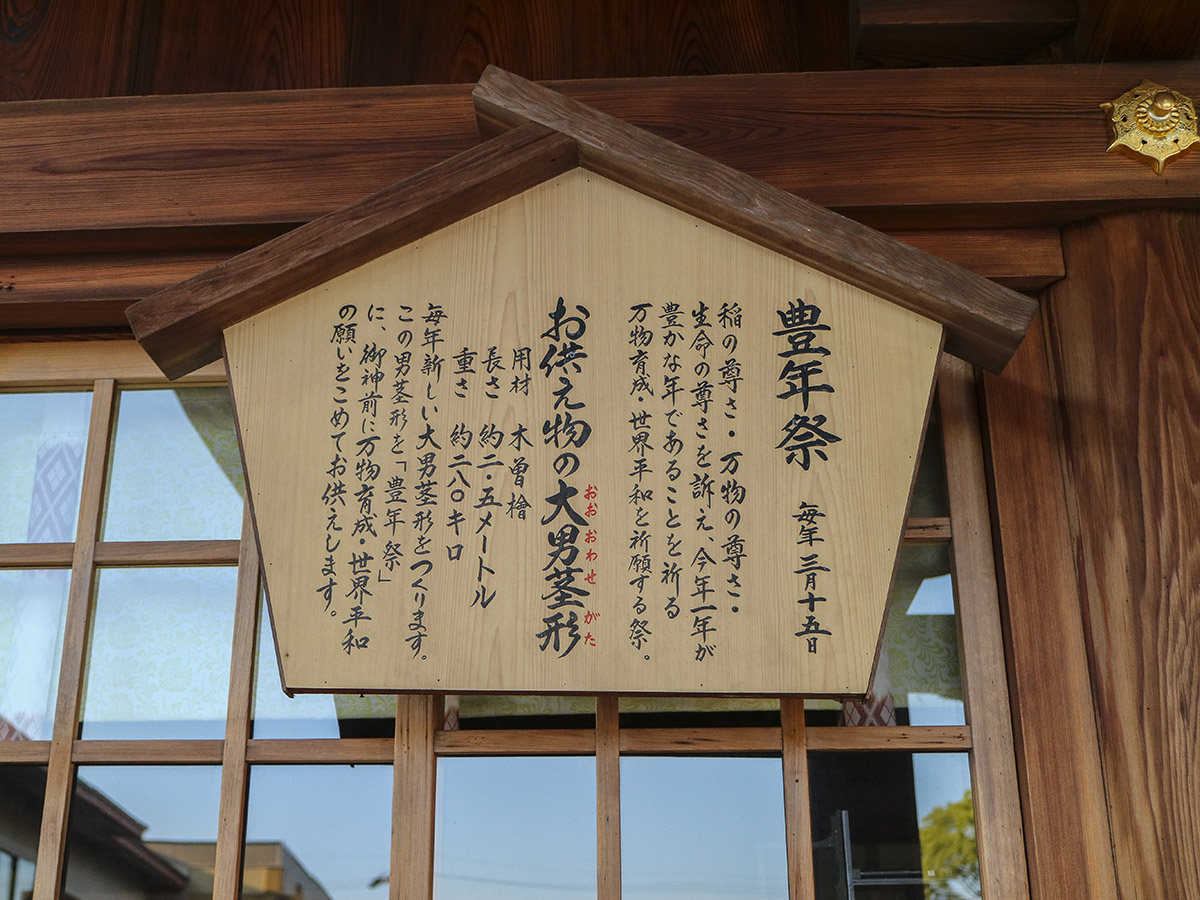 豊年祭 毎年 三月十五日
稲の尊さ・万物の尊さ・
生命の尊さを訴え、今年一年が
豊かな年であることを祈る
万物育成・世界平和を祈願する祭。
おお おわせ がた
お供え物の大男茎形
用材 木曽檜
長さ 約二・五メートル
重さ 約二八〇キロ
毎年新しい大男茎形をつくります。
この男茎形を「豊年祭」
に、御神前に万物育成・世界平和
の願いをこめてお供えします。